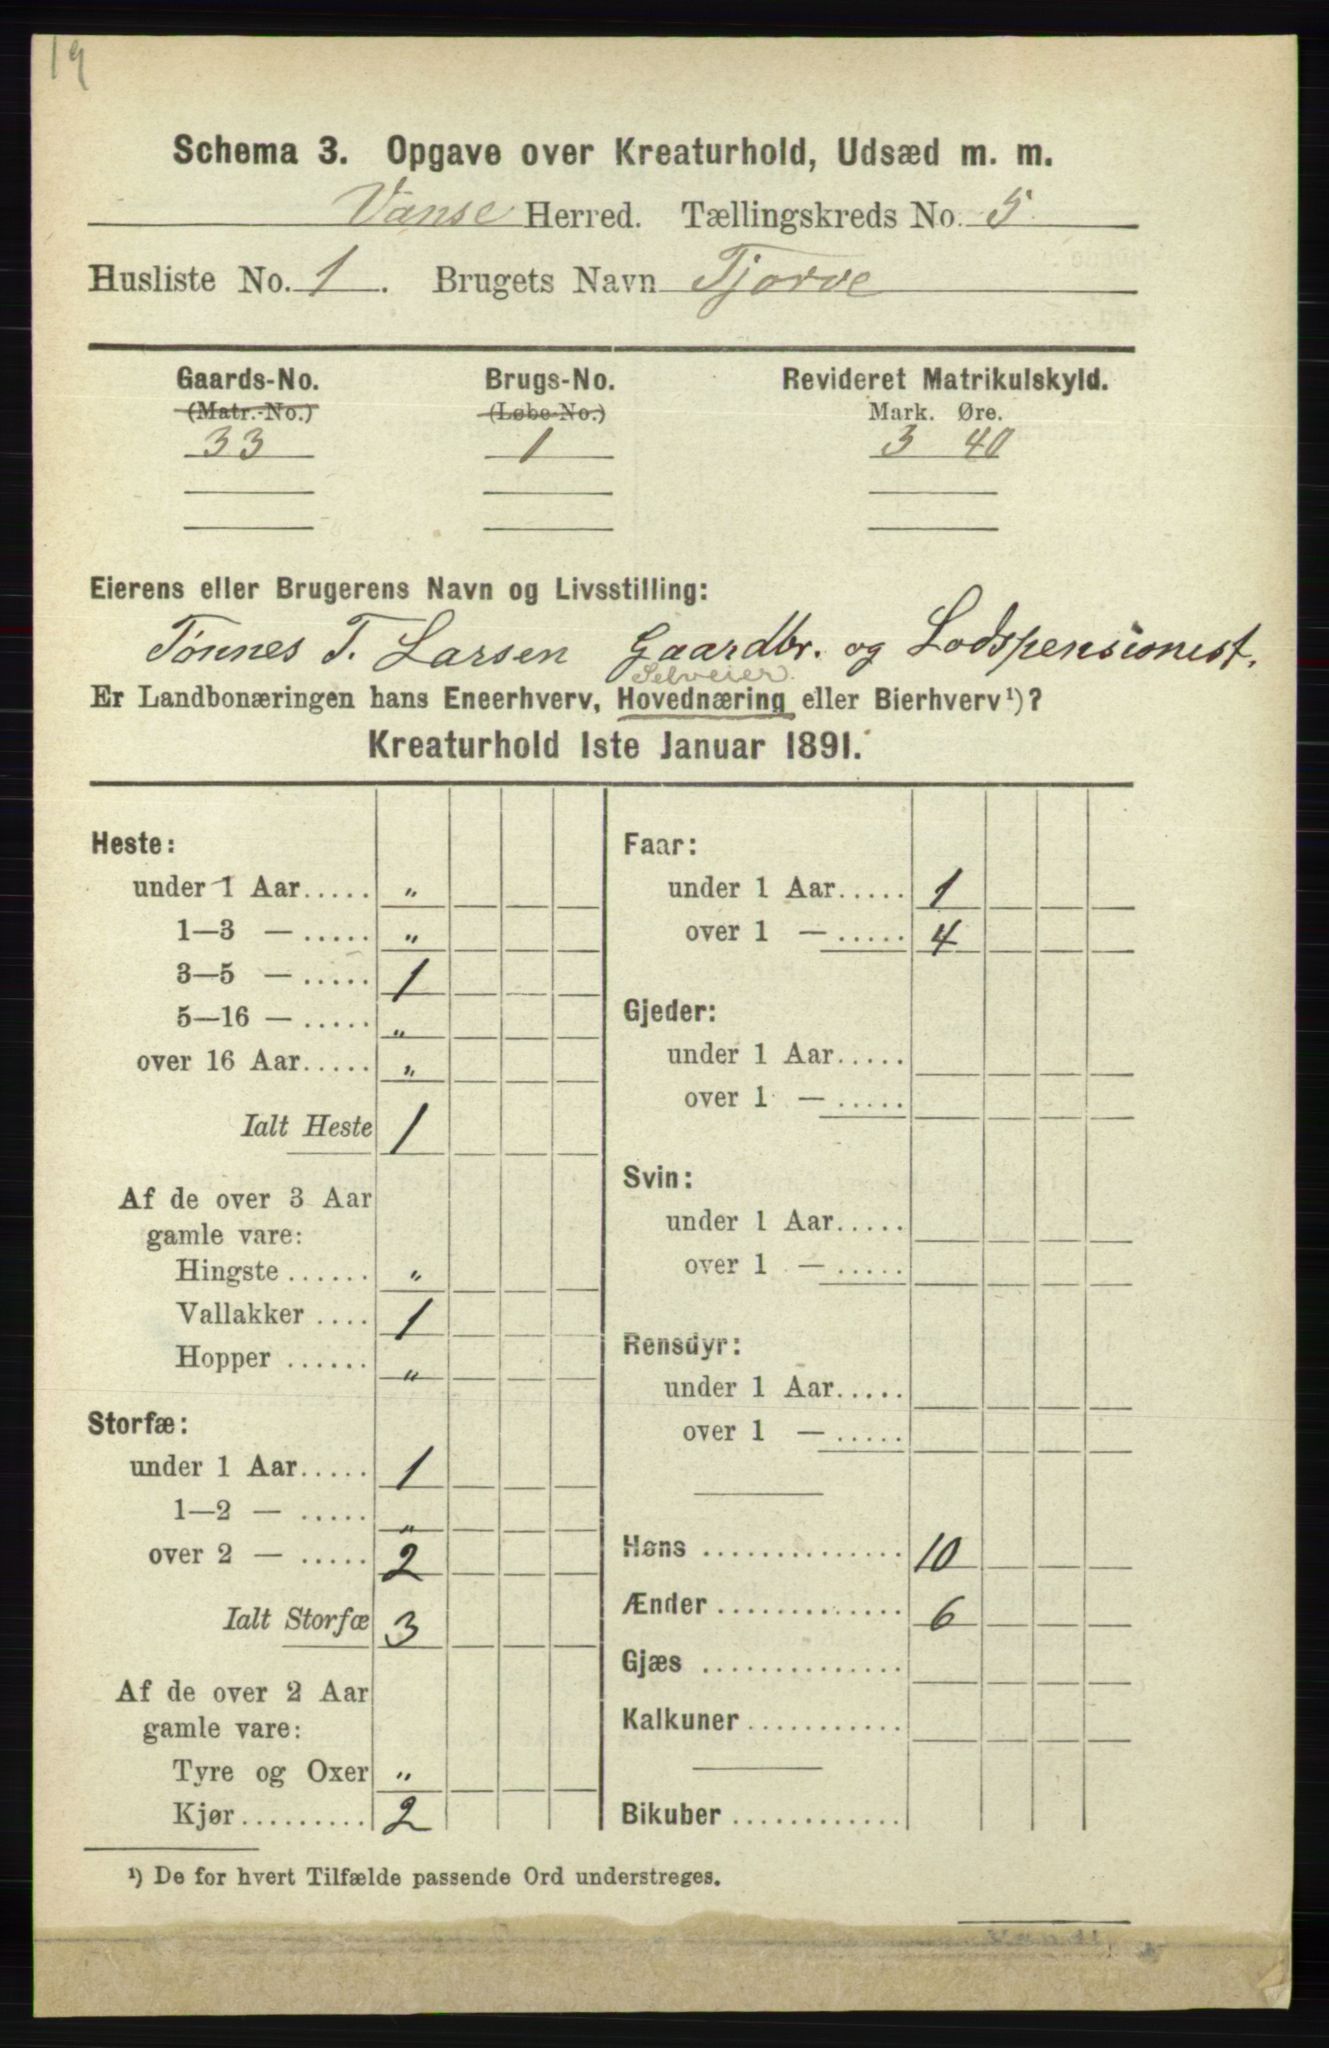 19
Schema 3. Opgave over Kreaturhold, Udsæd m. m.
Vanse Herred. Tællingskreds No. 5.
Husliste No. 1. Brugets Navn Tjorve
Gaards-No. Brugs-No. Revideret Matrikulskyld.
(Matr.-No.) (Løbe-No.) Mark. Øre.
33 1 3 40
Eierens eller Brugerens Navn og Livsstilling:
Tønnes T. Larsen Gaardbr. og Lodspensionist.
Selveier
Er Landbonæringen hans Eneerhverv, Hovednæring eller Bierhverv¹)?
Kreaturhold 1ste Januar 1891.
Heste:
under 1 Aar..... „
1—3 — ..... „
3—5 — ..... 1
5—16 — ..... „
over 16 Aar..... „
Ialt Heste 1
Af de over 3 Aar
gamle vare:
Hingste ...... „
Vallakker .... 1
Hopper ...... „
Storfæ:
under 1 Aar..... 1
1—2 — ..... „
over 2 — ..... 2
Ialt Storfæ 3
Af de over 2 Aar
gamle vare:
Tyre og Oxer „
Kjør......... 2
Faar:
under 1 Aar..... 1
over 1 — ..... 4
Gjeder:
under 1 Aar.....
over 1 — .....
Svin:
under 1 Aar.....
over 1 — .....
Rensdyr:
under 1 Aar.....
over 1 — .....
Høns .............. 10
Ænder ............. 6
Gjæs ..............
Kalkuner...........
Bikuber ............
¹) De for hvert Tilfælde passende Ord understreges.